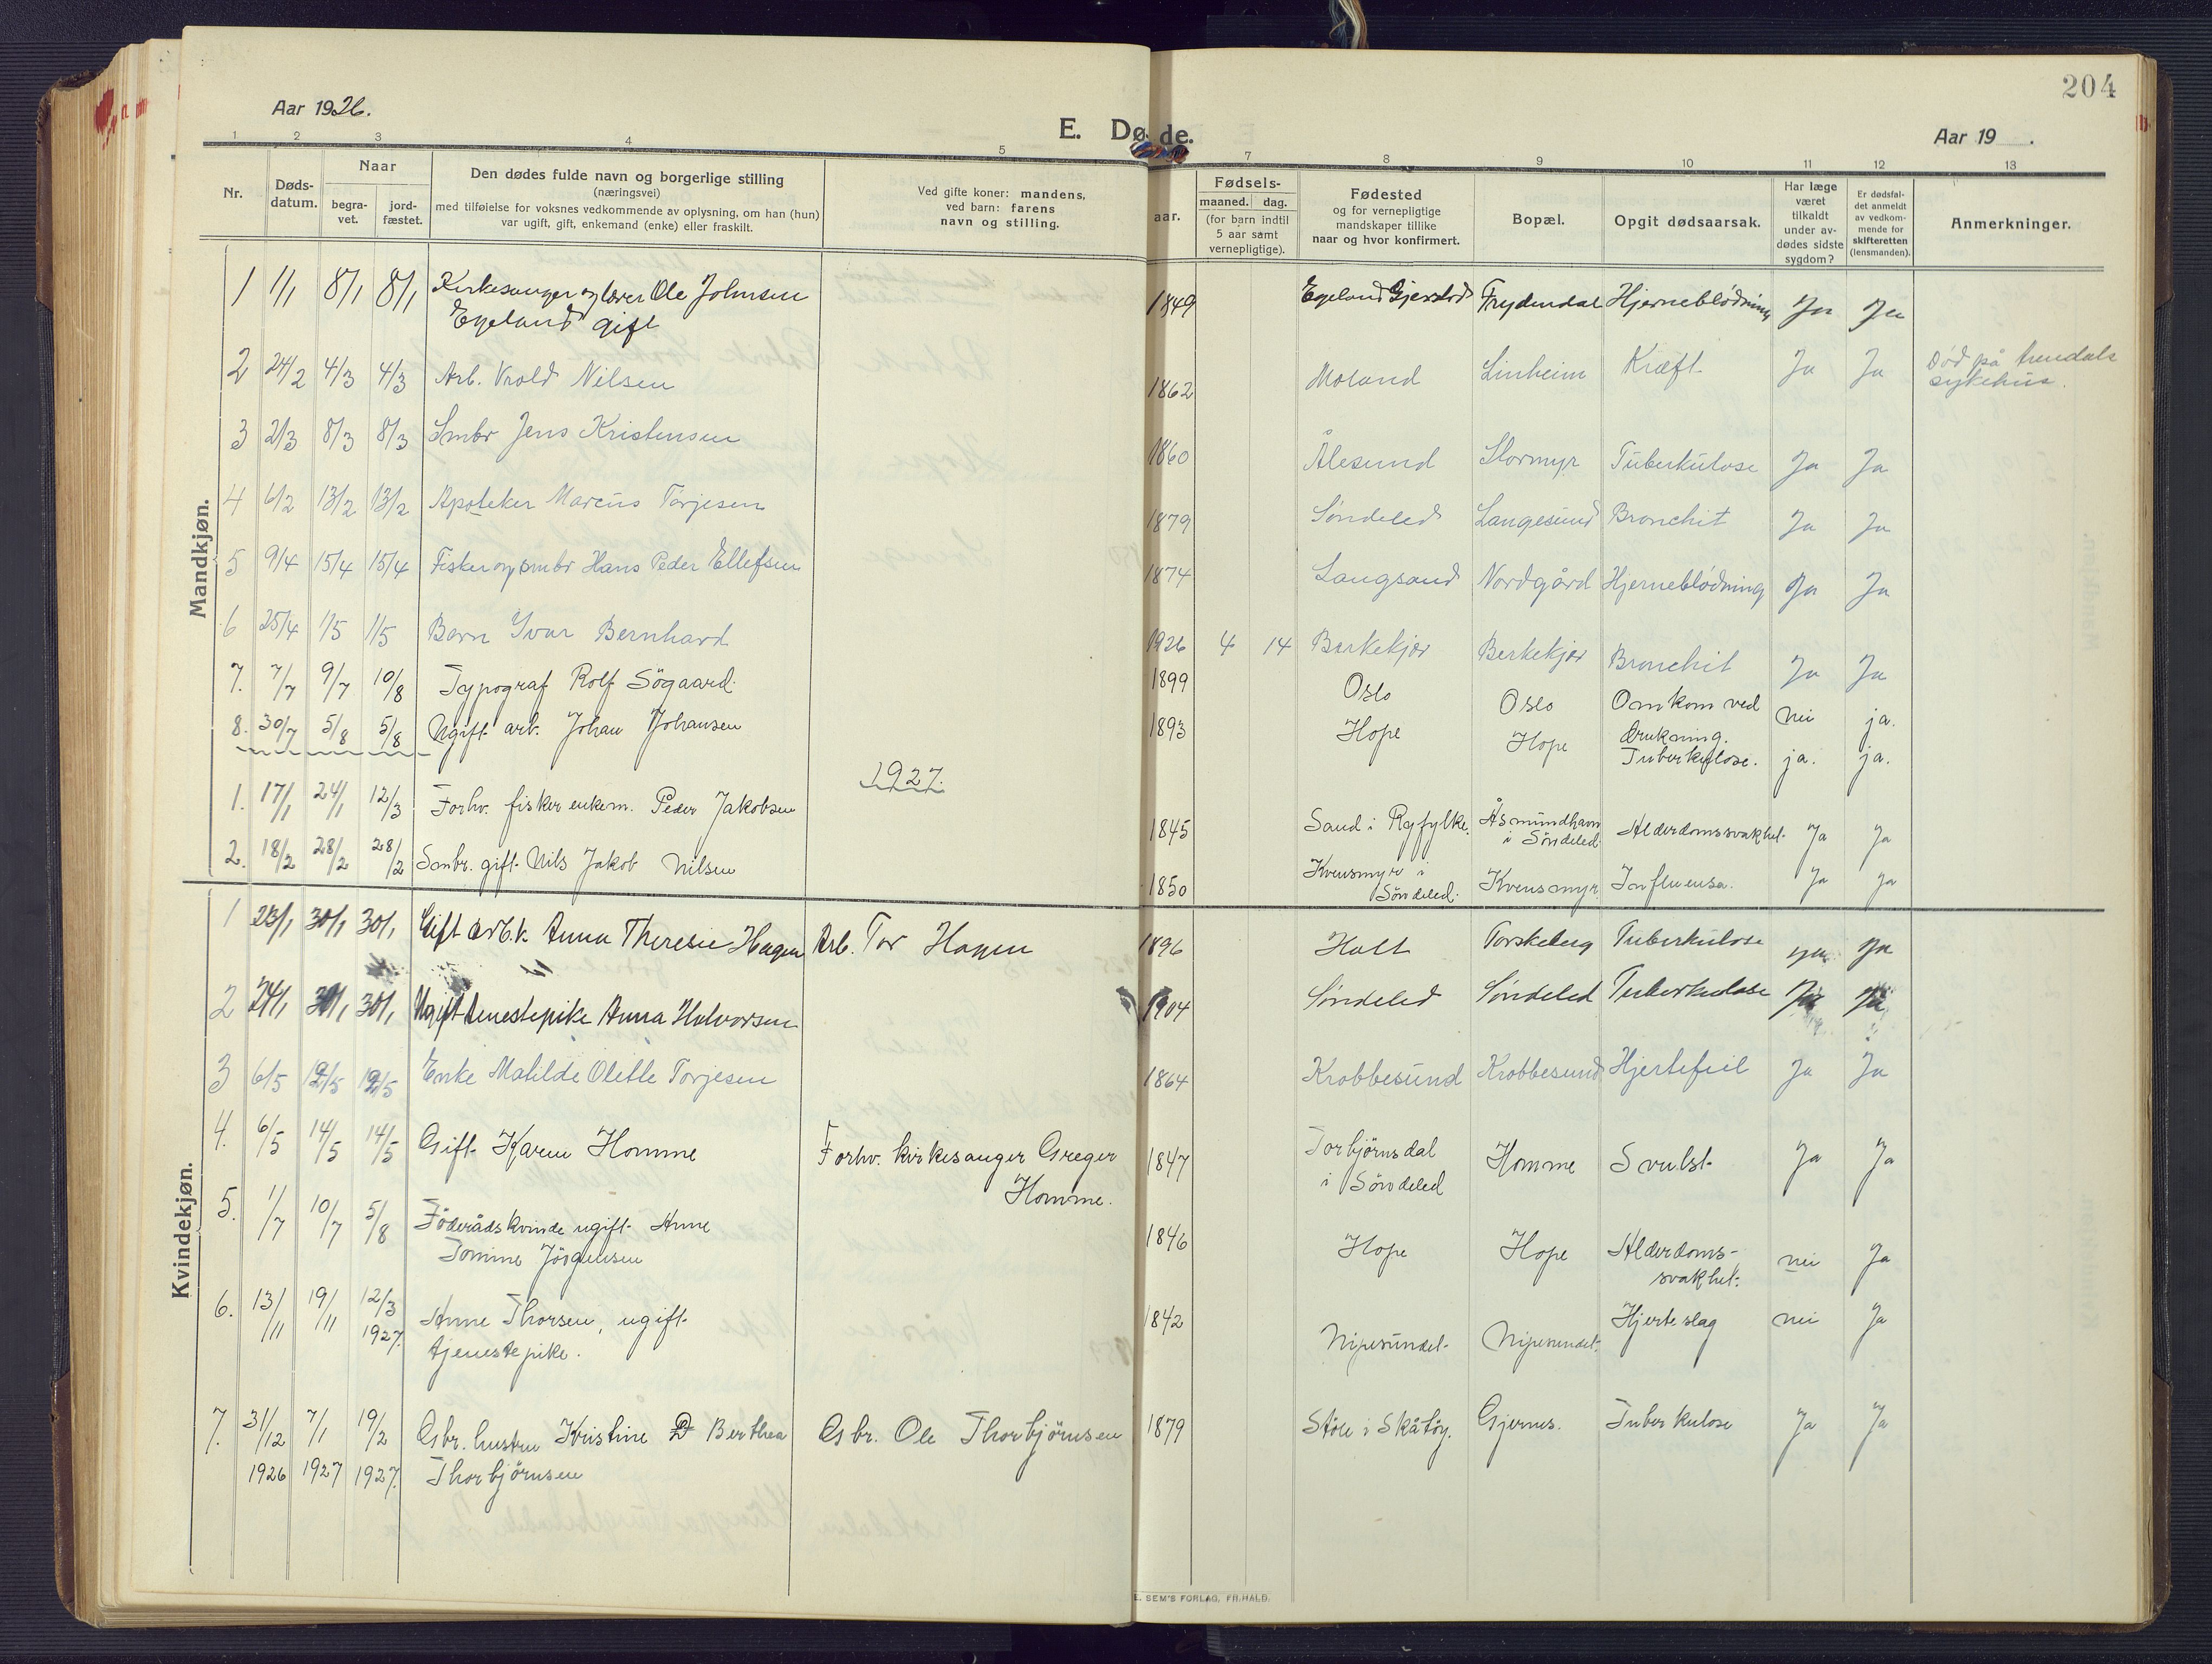 204
Aar 1926.
E. Døde.
Aar 19 .
1 2 3 4 5 7 8 9 10 11 12 13
Nr.
Døds-
datum.
Naar
begra-
vet.
jord-
fæstet.
Den dødes fulde navn og borgerlige stilling
(næringsvei)
med tilføielse for voksnes vedkommende av oplysning, om han (hun)
var ugift, gift, enkemand (enke) eller fraskilt.
Ved gifte koner: mandens,
ved barn: farens
navn og stilling.
aar.
Fødsels-
maaned. dag.
(for barn indtil
5 aar samt
vernepligtige).
Fødested
og for vernepligtige
mandskaper tillike
naar og hvor konfirmert.
Bopæl.
Opgit dødsaarsak.
Har læge
været
tilkaldt
under av-
dødes sidste
sygdom?
Er dødsfal-
det anmeldt
av vedkom-
mende for
skifteretten
(lensmanden).
Anmerkninger.
Mandkjøn.
1 1/1 8/1 8/1 Kirkesanger og lærer Ole Johnsen 1849 Egeland Gjerstad Frydendal Hjerneblödning Ja Ja
Egeland gift
2 24/2 4/3 4/3 Arb. Vrold Nilsen 1862 Moland Linheim Kræft Ja Ja Död på Arendals
sykehus.
3 2/3 8/3 8/3 Smbr Jens Kristensen 1860 Ålesund Stormyr Tuberkulose Ja Ja
4 6/2 13/2 13/2 Apoteker Marcus Torjesen 1879 Söndeled Langesund Bronchit Ja Ja
5 9/4 15/4 15/4 Fisker og smbr Hans Peder Ellefsen 1874 Langsand Nordgård Hjerneblödning Ja Ja
6 25/4 1/5 1/5 Barn Yvar Bernhard 1926 4 14 Barkekjær Berkekjær Bronchit Ja Ja
7. 7/7 9/7 10/8 Typograf Rolf Sögaard. 1899 Oslo Oslo Omkom ved nei ja.
drukning.
8. 30/7 5/8 5/8 Ugift arb. Johan Johansen 1893 Hope Hope Tuberkulose. ja. ja.
1927.
1. 17/1 24/1 12/3 Forhv. fisker enkem. Peder Jakobsen 1845 Sand i Ryfylke. Åsmundhavn Alderdomssvakhet Ja Ja
i Söndeled.
2. 18/2 28/2 28/2 Smbr. gift Nils Jakob Nilsen 1850 Kvensmyr i Kvensmyr Influensa. Ja Ja
Söndeled.
Kvindekjøn.
1 23/1 30/1 30/1 Gift arb.k Anna Theresie Hagen Arb. Tor Hagen 1896 Holt Torskeberg Tuberkulose Ja Ja
2 24/1 30/1 30/1 Ugift tenestepike Anna Halvorsen 1904 Söndeled Söndeled Tuberkulose Ja Ja
3 6/5 12/5 12/5 Enke Matilde Olette Torjesen 1864 Krabbesund Krabbesund Hjertefeil Ja Ja
4. 6/5 14/5 14/5 Gift Karen Homme Forhv. kirkesanger Greger 1847 Torbjörnsdal Homme Svulst Ja Ja
Homme. i Söndeled
5. 1/7 10/7 5/8 Föderådskvinde ugift Anne 1846 Hope Hope Alderdoms- nei Ja
Tomine Jörgensen svakhet.
6. 13/11 19/11 12/3 Anne Thorsen, ugift 1842 Nipesundet Nipesundet. Hjerteslag nei Ja
1927. tjenestepike.
7. 31/12 7/1 19/2 Gbr. hustru Kristine Berthea Gbr. Ole Thorbjörnsen 1879 Stöle i Skåtöy. Gjernes. Tuberkulose Ja Ja
1926 1927 1927. Thorbjörnsen
E. SEM'S FORLAG, FR.HALD.